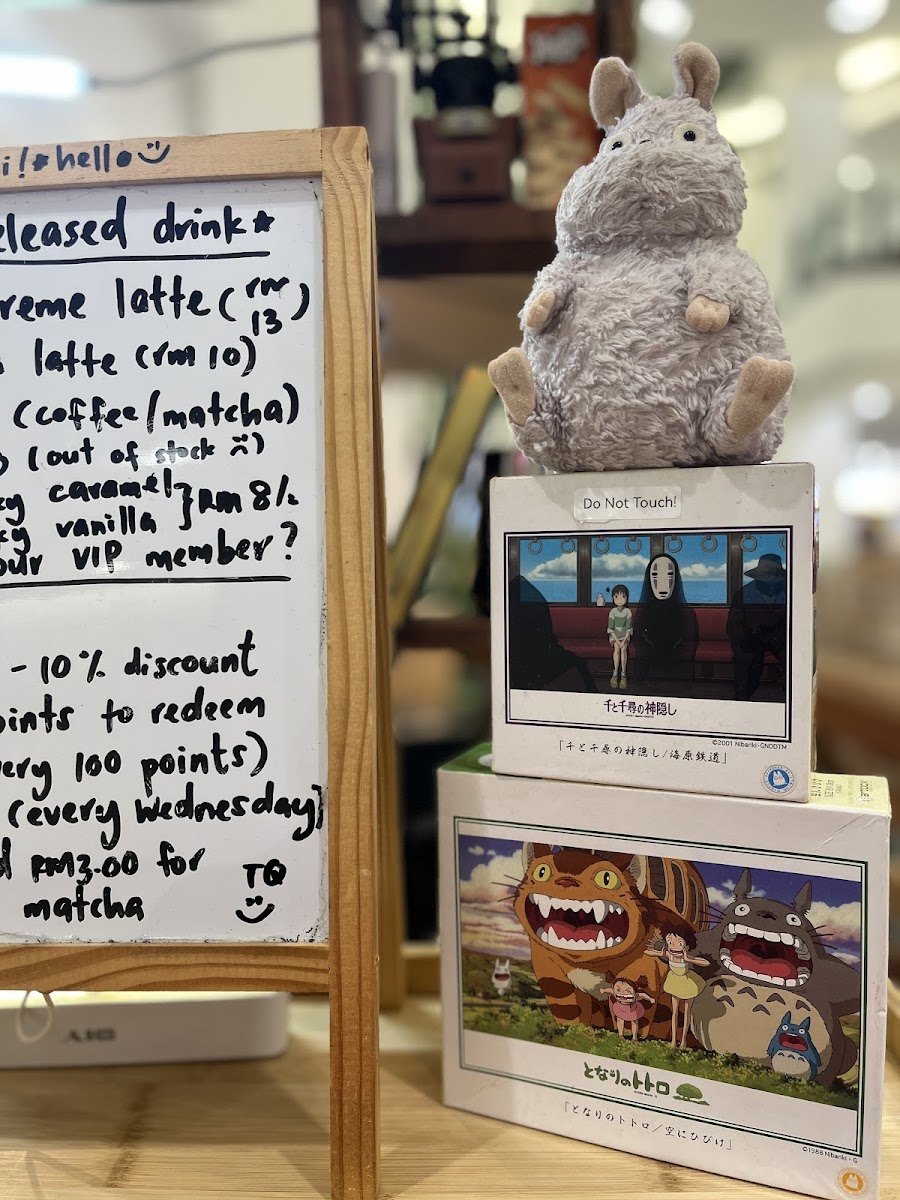 i! hello
eleased drink
reme latte (rm 13)
latte (rm 10)
(coffee/matcha)
(out of stock
caramel } RM 8/
vanilla
our VIP member?
- 10% discount
oints to redeem
very 100 points)
(every Wednesday)
RM3.00 for
matcha
TQ
Do Not Touch!
千と千尋の神隠し
©2001 Nibariki・GNDDTM
「千と千尋の神隠し/海原鉄道」
となりのトトロ
「となりのトトロ/空にひびけ」
©1988 Nibariki・G